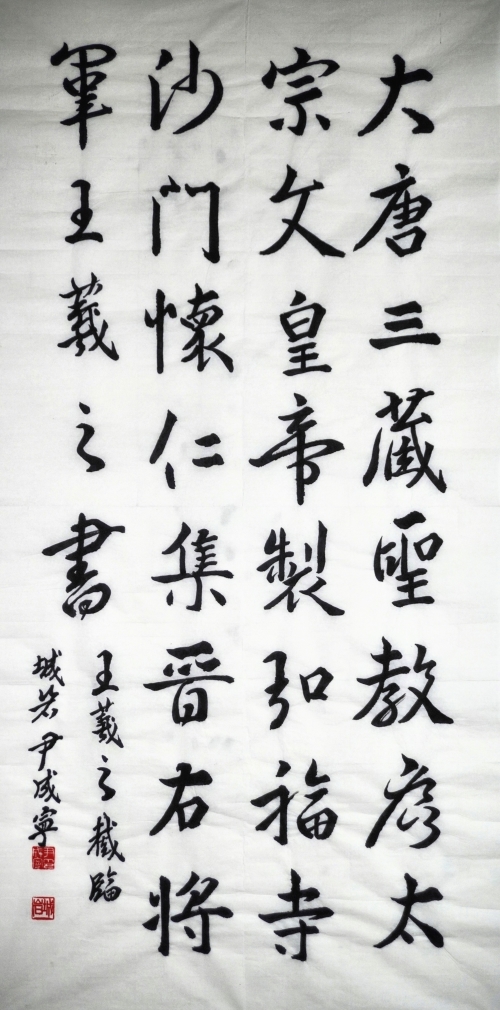 大唐三藏聖教序太
宗文皇帝製弘福寺
沙門懷仁集晉右將
軍王羲之書
王羲之截臨
尹成寧